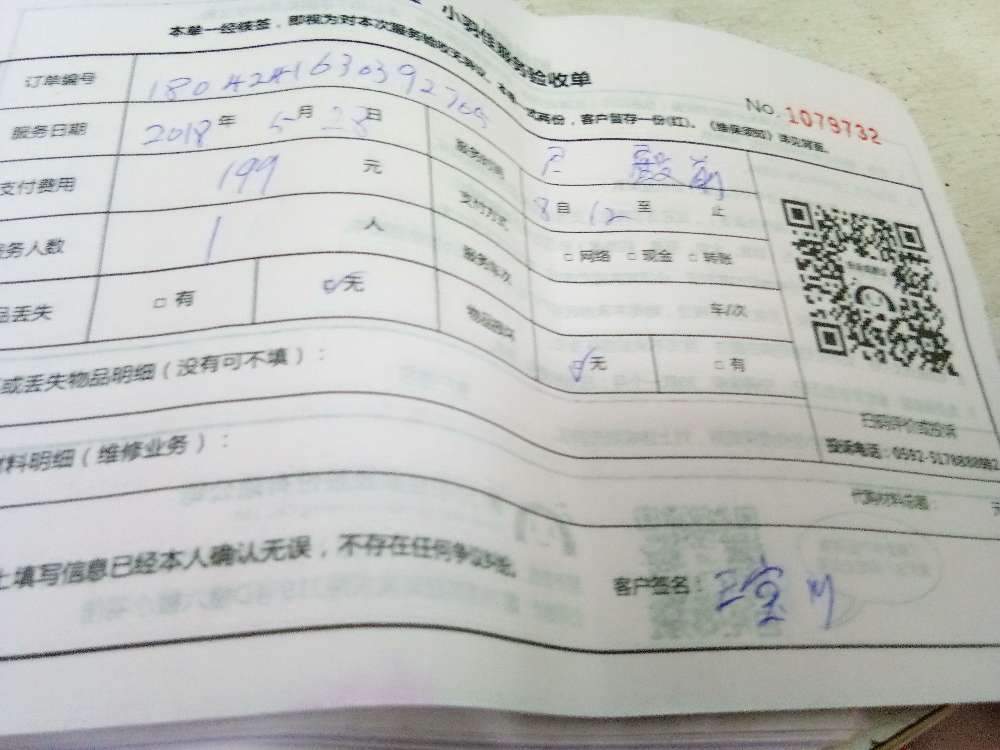 小羽佳服务验收单
本单一经核签，即视为对本次服务验收无异议，本单一式两份，客户留存一份(红)。《维保须知》详见背面。
No. 1079732
订单编号 18042416303927
服务日期 2018 年 5 月 28 日 服务时间
支付费用 199 元 支付方式
8 自 12 至 止
服务人数 1 人 服务车次
□ 网络 □ 现金 □ 转账
车/次
品丢失 □ 有 ☑无 物品损坏 ☑无 □ 有
或丢失物品明细（没有可不填）：
扫码评价或投诉
投诉电话：0592-5178888
材料明细（维修业务）：
代购材料总额： 元
上填写信息已经本人确认无误，不存在任何争议纠纷。
客户签名：